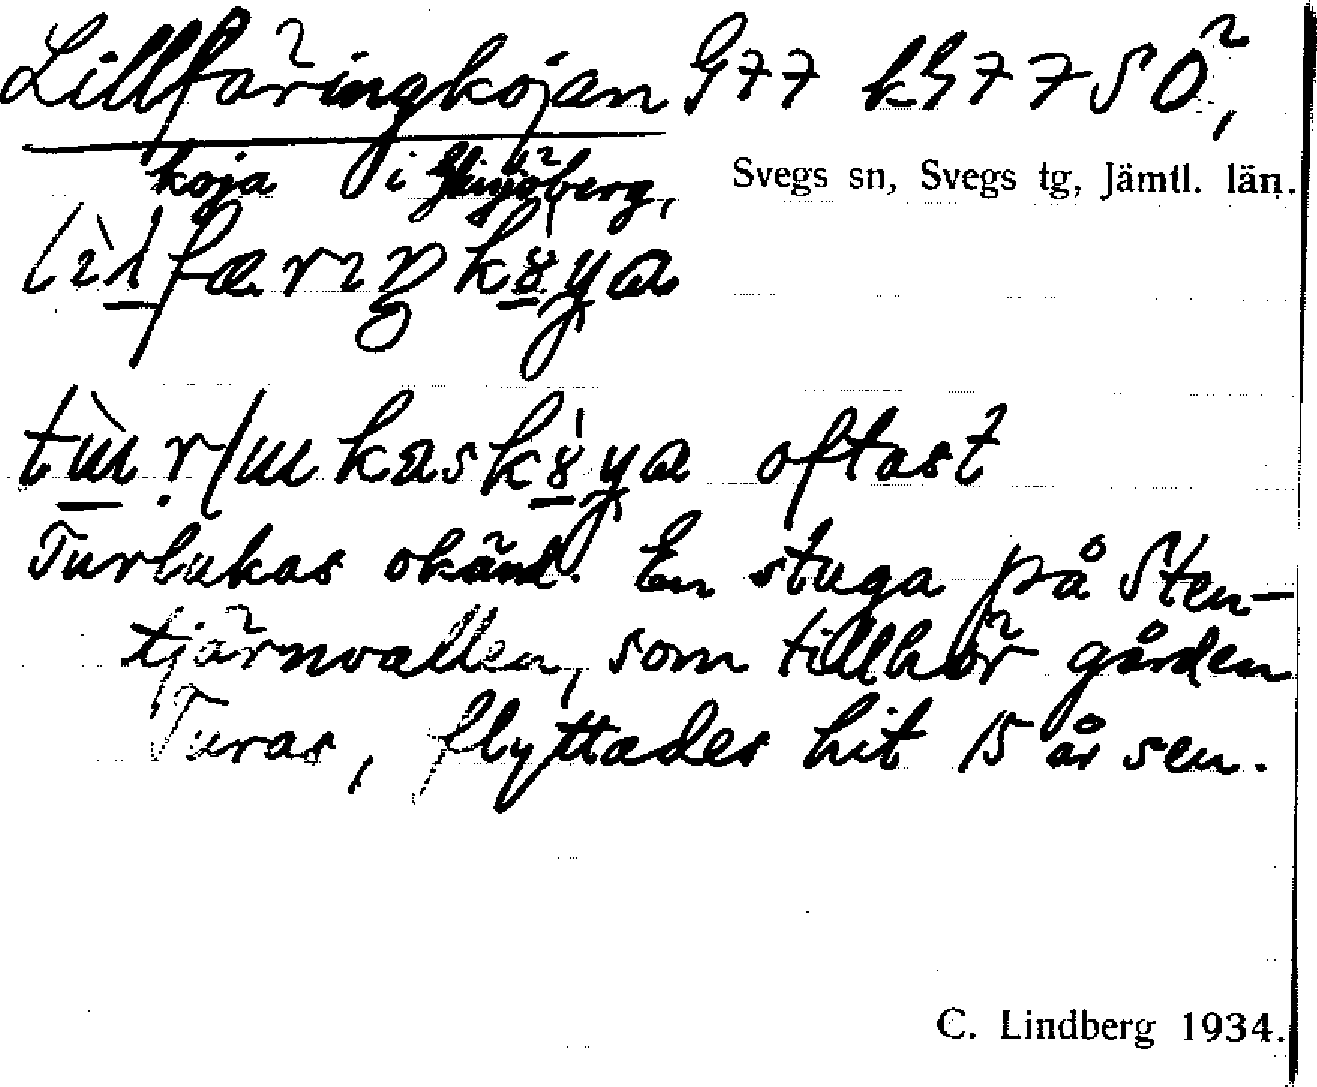 Lillfäringkojan G77 kG77SÖ,
koja i berg, Svegs sn, Svegs tg, Jämtl. län.
oftast
Turlukas okänd. En stuga på Sten-
tjärnvallen, som tillhör gården
Turas, flyttades hit 15 år sen.
C. Lindberg 1934.